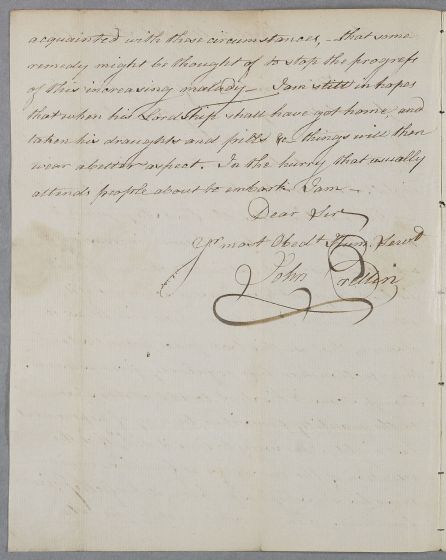 acquainted with these circumstances, – that some
remedy might be thought of to stop the progress
of this increasing malady – I am still in hopes
that when his Lordship shall have got home, and
taken his draughts and pills &c – things will then
wear a better aspect. In the hurry that usually
attends people about to embark. I am –
Dear Sir
Yr. most Obedt. Hum. Servt
John